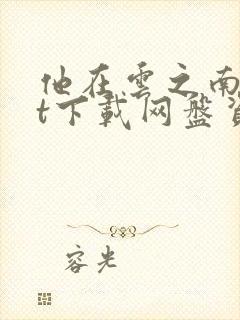 他在雲之南
t下載网盤資
容光